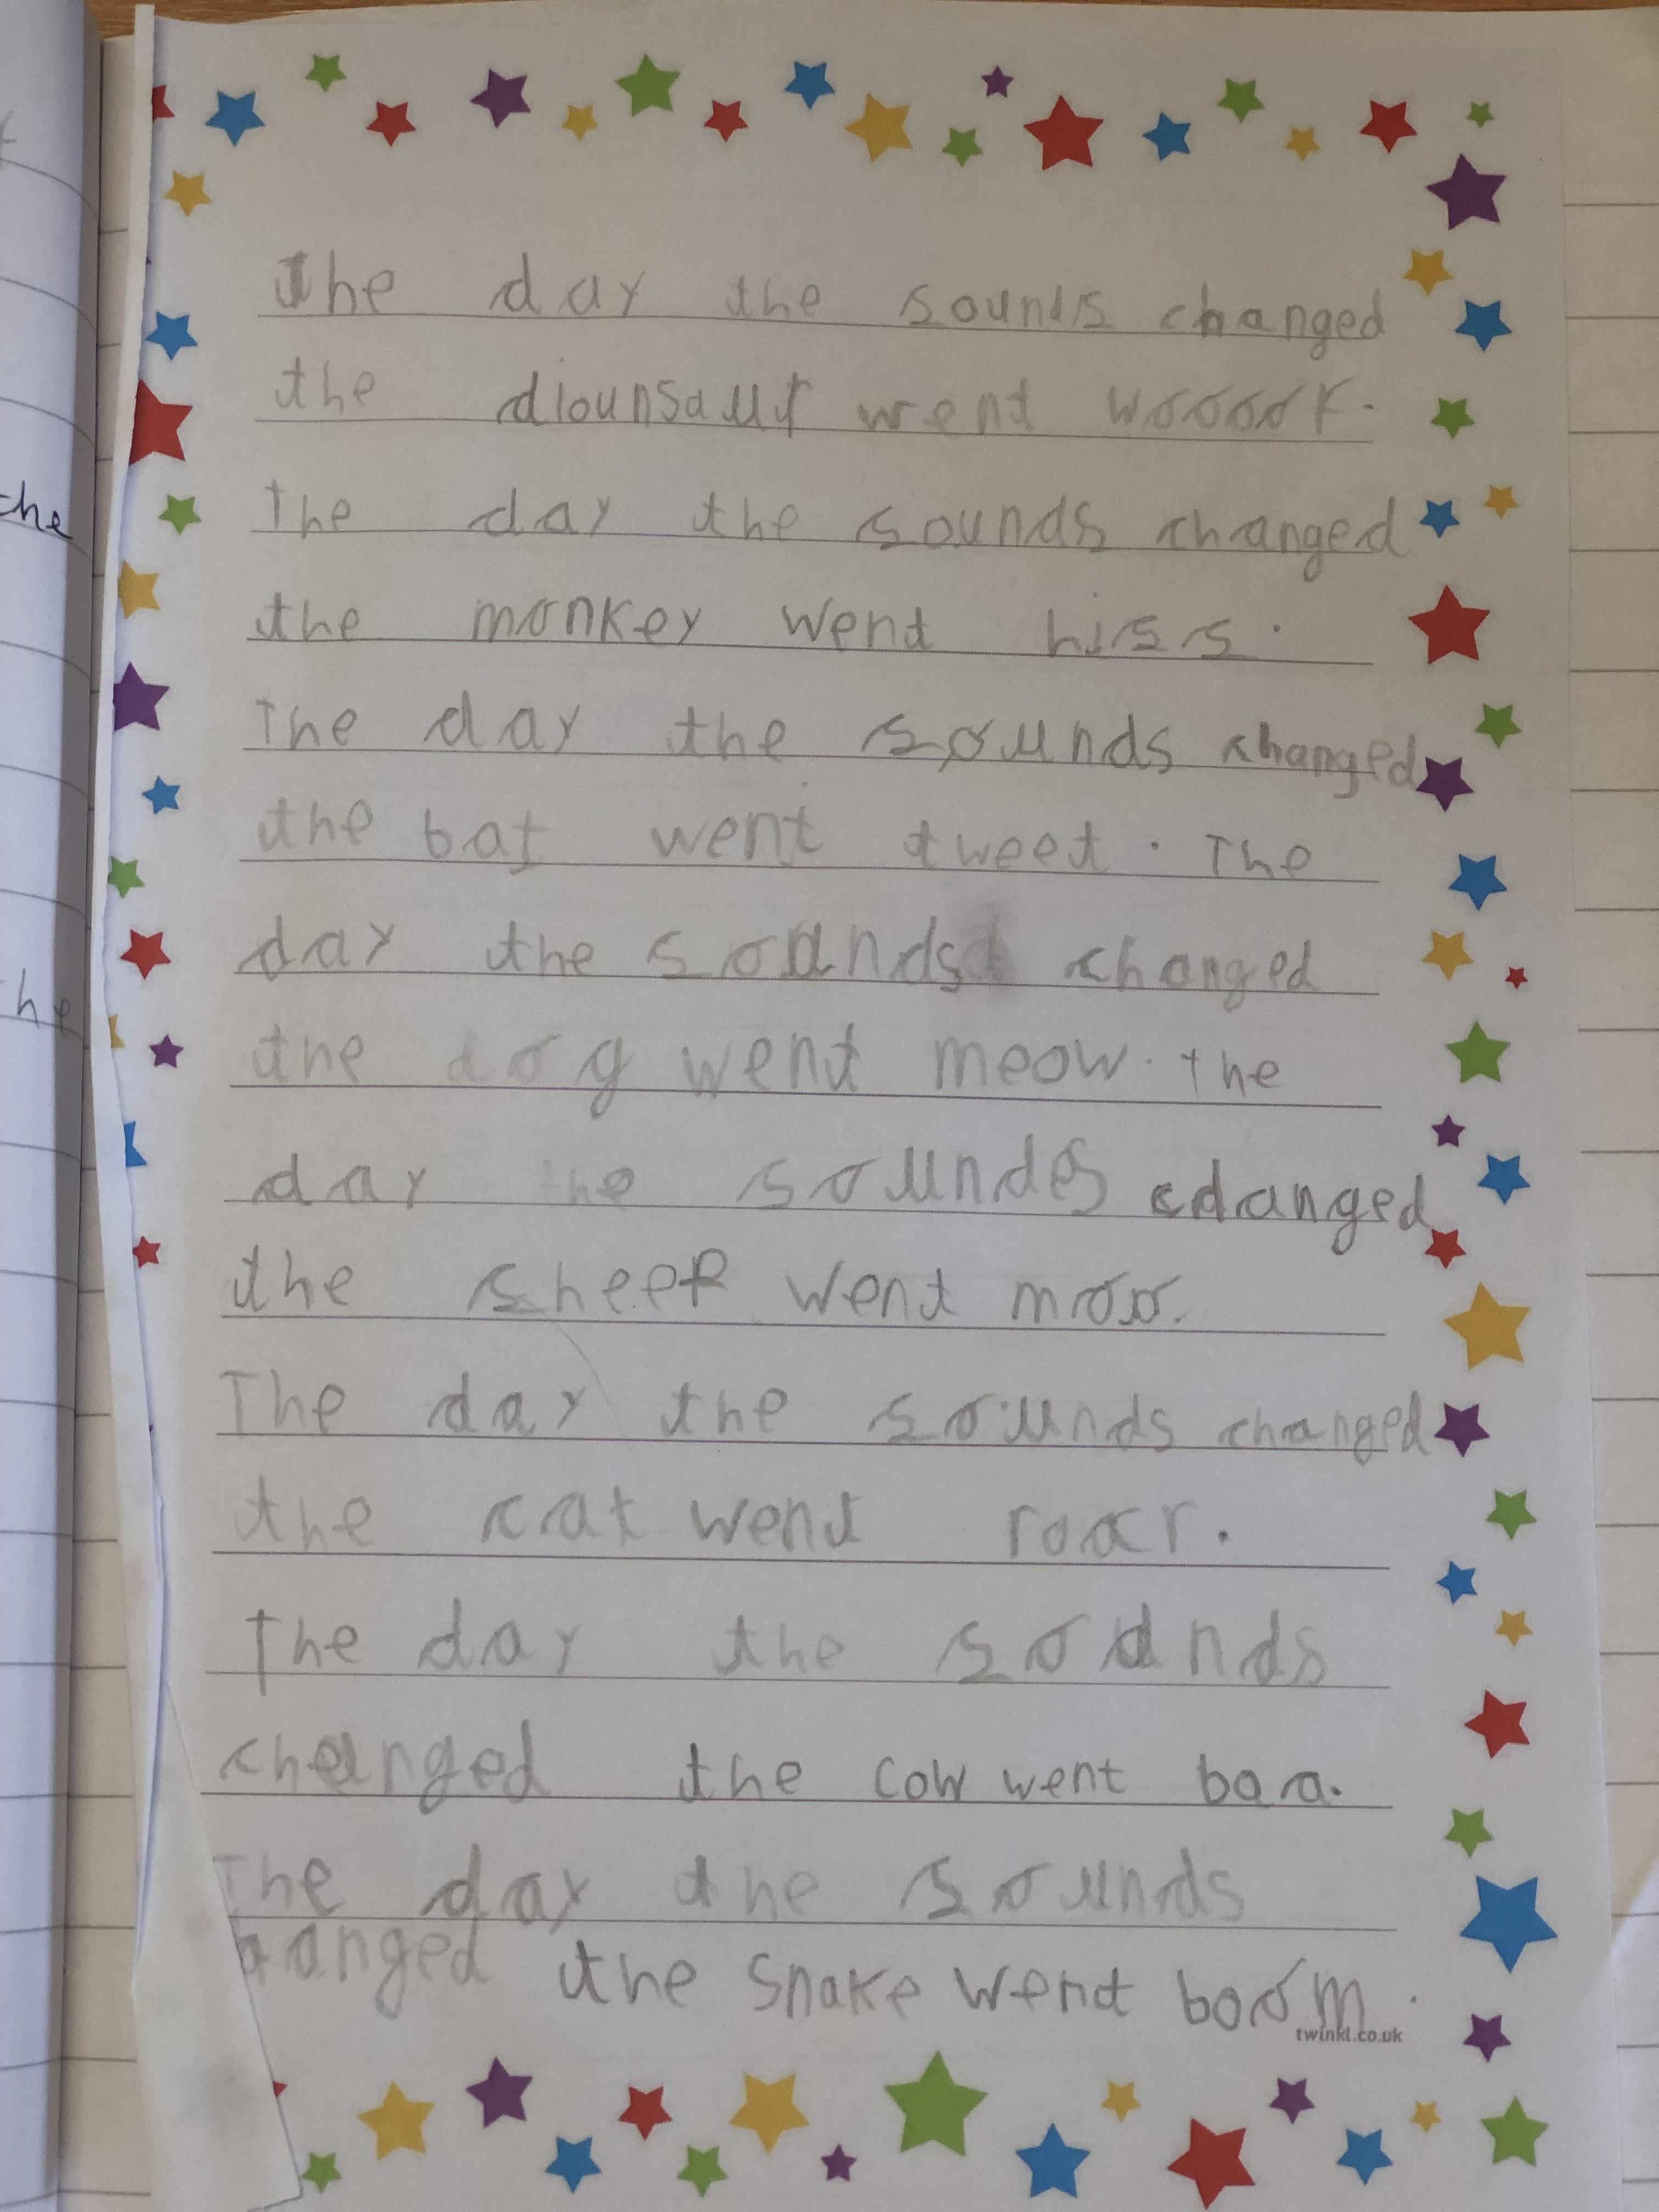 The day the sounds changed
the diounsaur went woooor.
The day the sounds changed
the monkey went hiss.
The day the sounds changed
the bat went tweet. The
day the sounds changed
the dog went meow. the
day the sounds cdanged
the sheep went moo.
The day the sounds changed
the cat went roar.
The day the sounds
changed the cow went baa.
The day the sounds
anged the snake went boom.
twinkl.co.uk
the
he